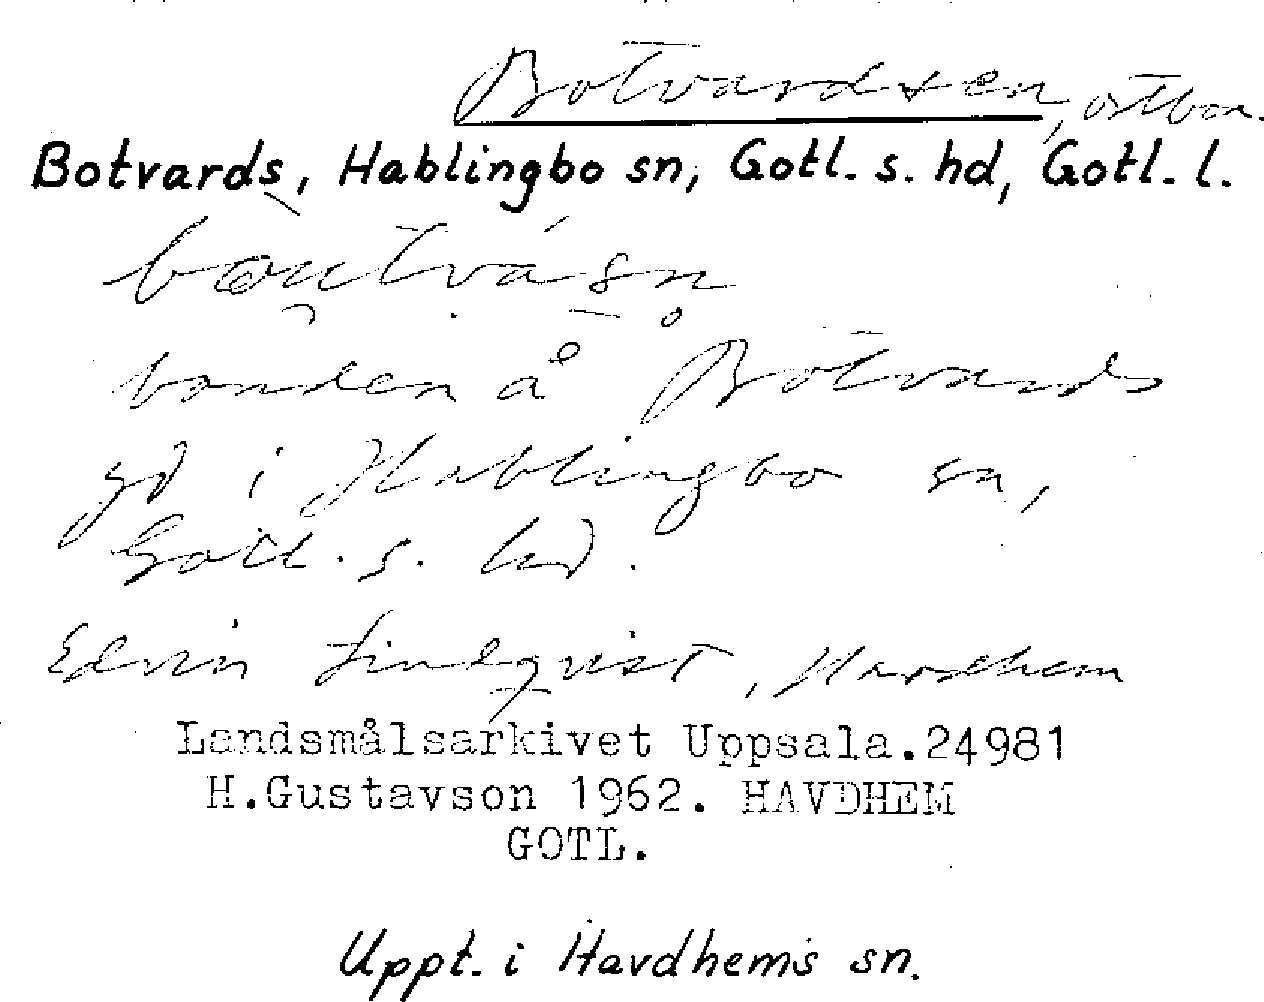 Botvardsen, ortbon.
Botvards, Hablingbo sn, Gotl. s. hd, Gotl. l.
bonden å Botvards
gd i Hablingbo sn,
Gotl. s. hd.
Edvin Lindqvist, Havdhem
Landsmålsarkivet Uppsala.24981
H.Gustavson 1962. HAVDHEM
GOTL.
Uppt. i Havdhems sn.